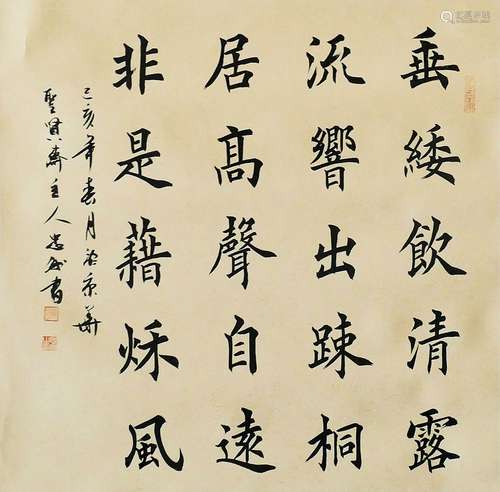 垂緌飲清露
流響出踈桐
居高聲自遠
非是藉秌風
己亥年春月於京華
聖賢齋主人忠義書